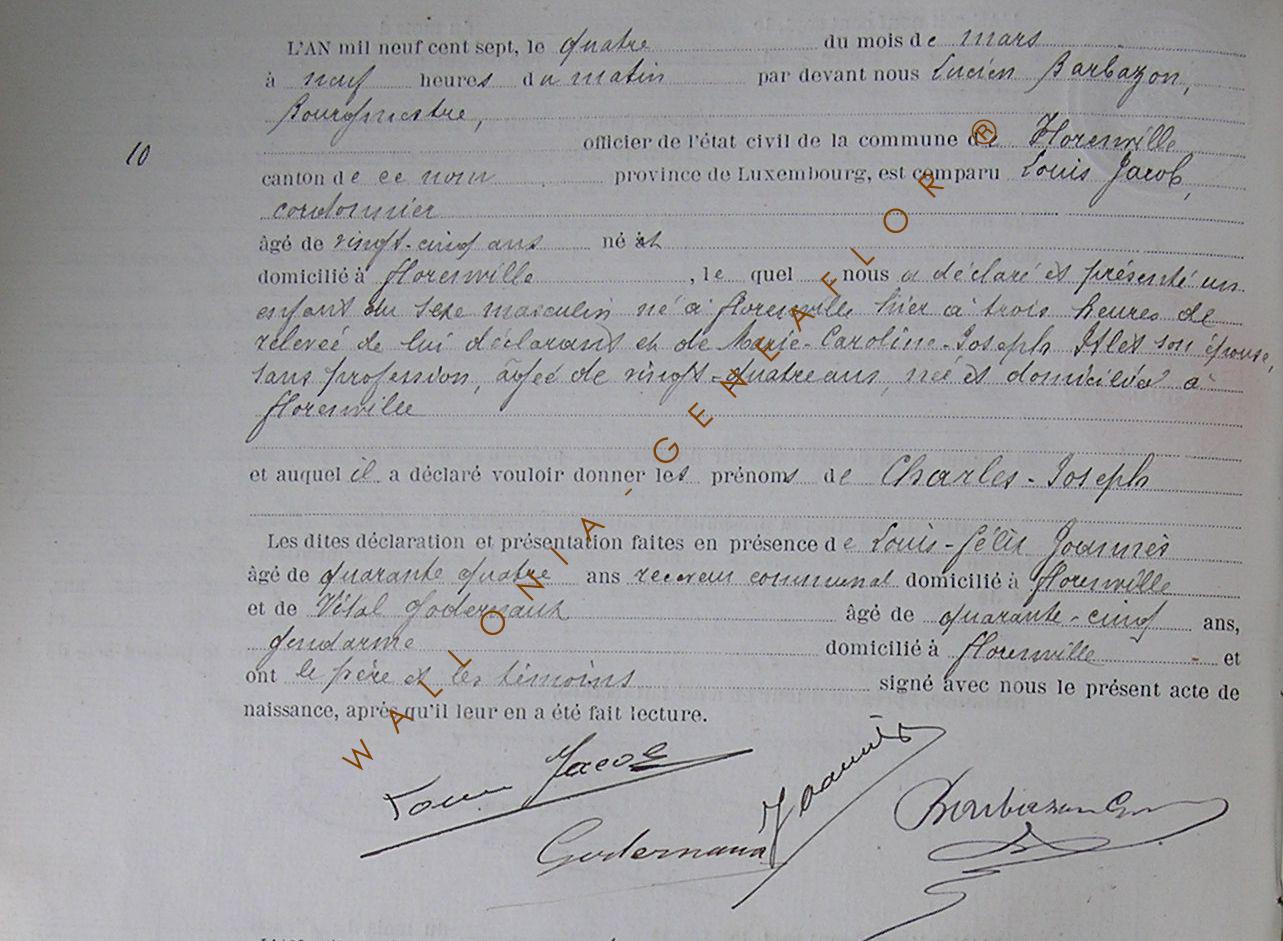 L'AN mil neuf cent sept, le quatre du mois de mars
à neuf heures du matin par devant nous Lucien Barbazon,
Bourgmestre,
officier de l'état civil de la commune de Florenville
10
canton de ce nom province de Luxembourg, est comparu Louis Jacob,
cordonnier
âgé de vingt-cinq ans né et
domicilié à Florenville, lequel nous a déclaré et présenté un
enfant du sexe masculin né à Florenville hier à trois heures de
relevée de lui déclarant et de Marie-Caroline-Joseph son épouse,
sans profession, âgée de vingt-quatre ans, née et domiciliée à
Florenville
et auquel il a déclaré vouloir donner les prénoms de Charles-Joseph
Les dites déclaration et présentation faites en présence de Louis-Félix Joannès
âgé de quarante quatre ans receveur communal domicilié à Florenville
et de Vital Godernaux âgé de quarante-cinq ans,
gendarme domicilié à Florenville et
ont le père et les témoins signé avec nous le présent acte de
naissance, après qu'il leur en a été fait lecture.
Louis Jacob
Joannès
Godernaux
Barbazon
WALLONIA-GENEAFLOR ®